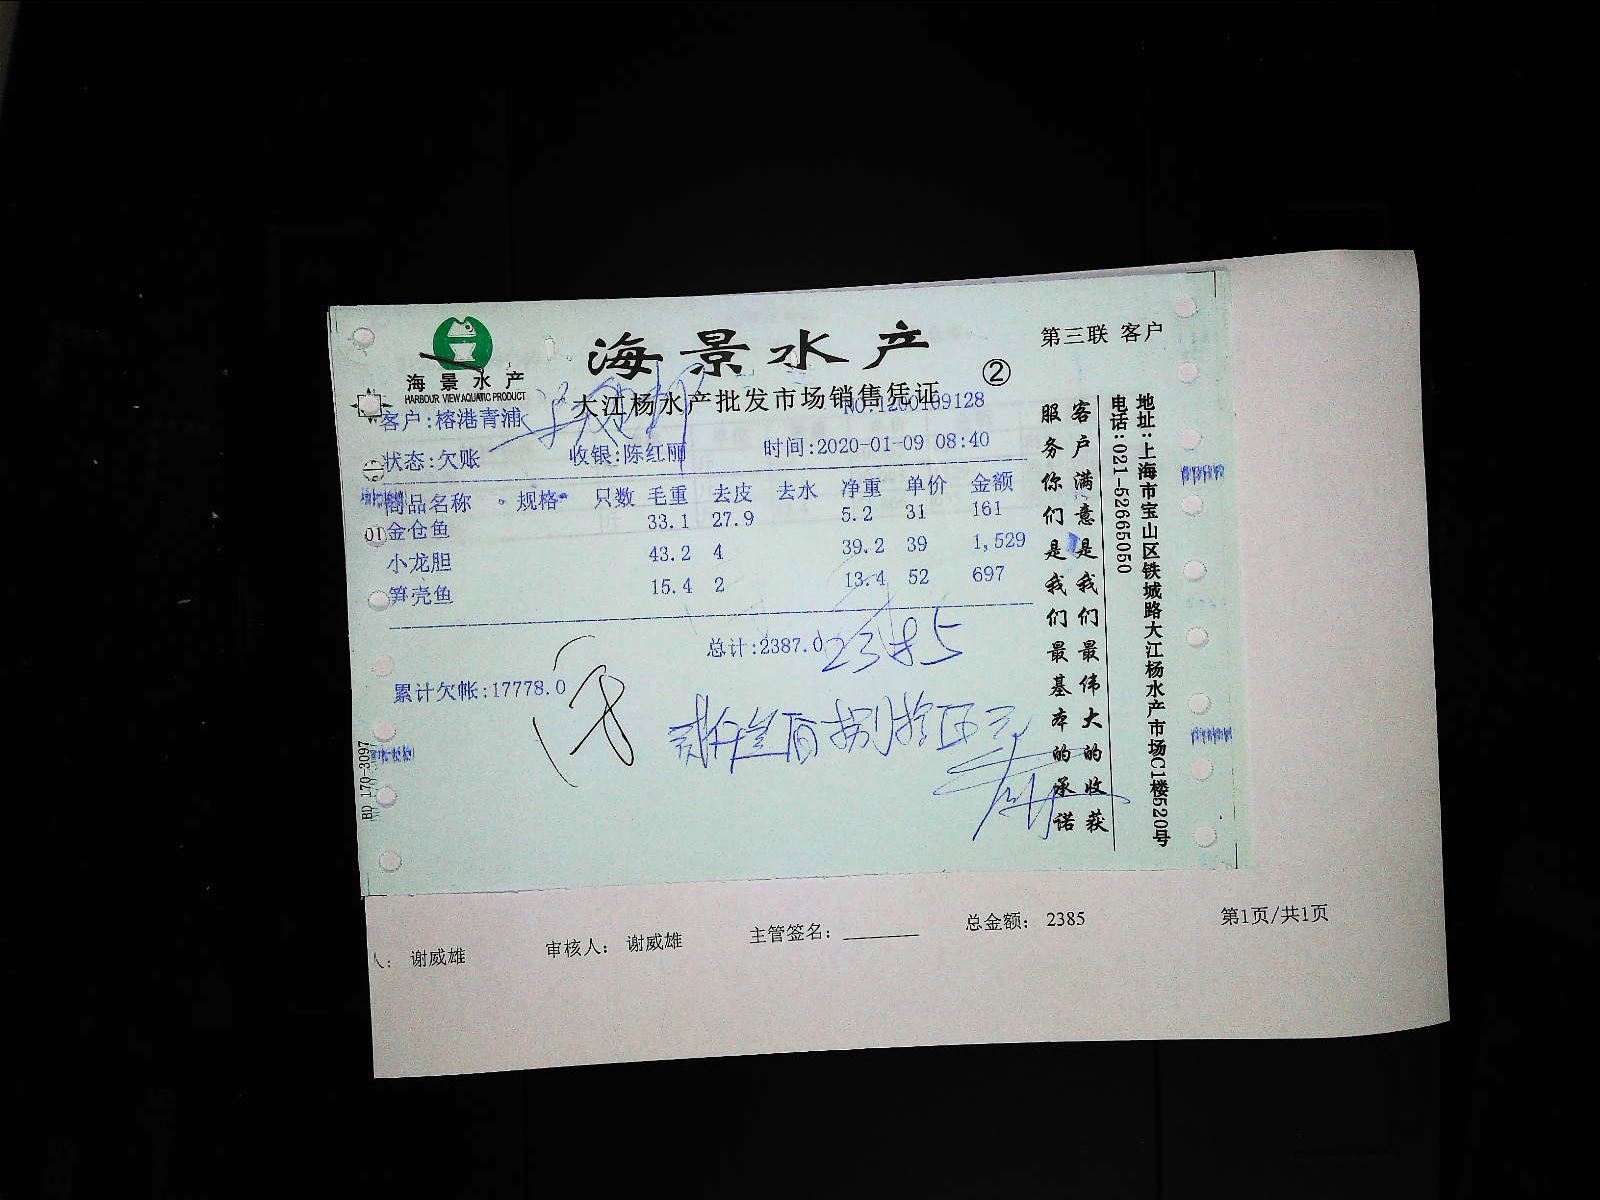 海景水产
第三联 客户
②
海景水产
HARBOUR VIEW AQUATIC PRODUCT
大江杨水产批发市场销售凭证
NO.1290109128
客户:榕港青浦
状态:欠账 收银:陈红丽 时间:2020-01-09 08:40
商品名称 规格 只数 毛重 去皮 去水 净重 单价 金额
金仓鱼 33.1 27.9 5.2 31 161
小龙胆 43.2 4 39.2 39 1,529
笋壳鱼 15.4 2 13.4 52 697
总计:2387.0
2385
累计欠帐:17778.0
贰仟叁百捌拾伍元
客户满意是我们最伟大的收获
服务你们是我们最基本的承诺
地址:上海市宝山区铁城路大江杨水产市场C1楼520号
电话:021-52665050
BD 170-3097
人: 谢威雄 审核人: 谢威雄 主管签名: 总金额: 2385 第1页/共1页